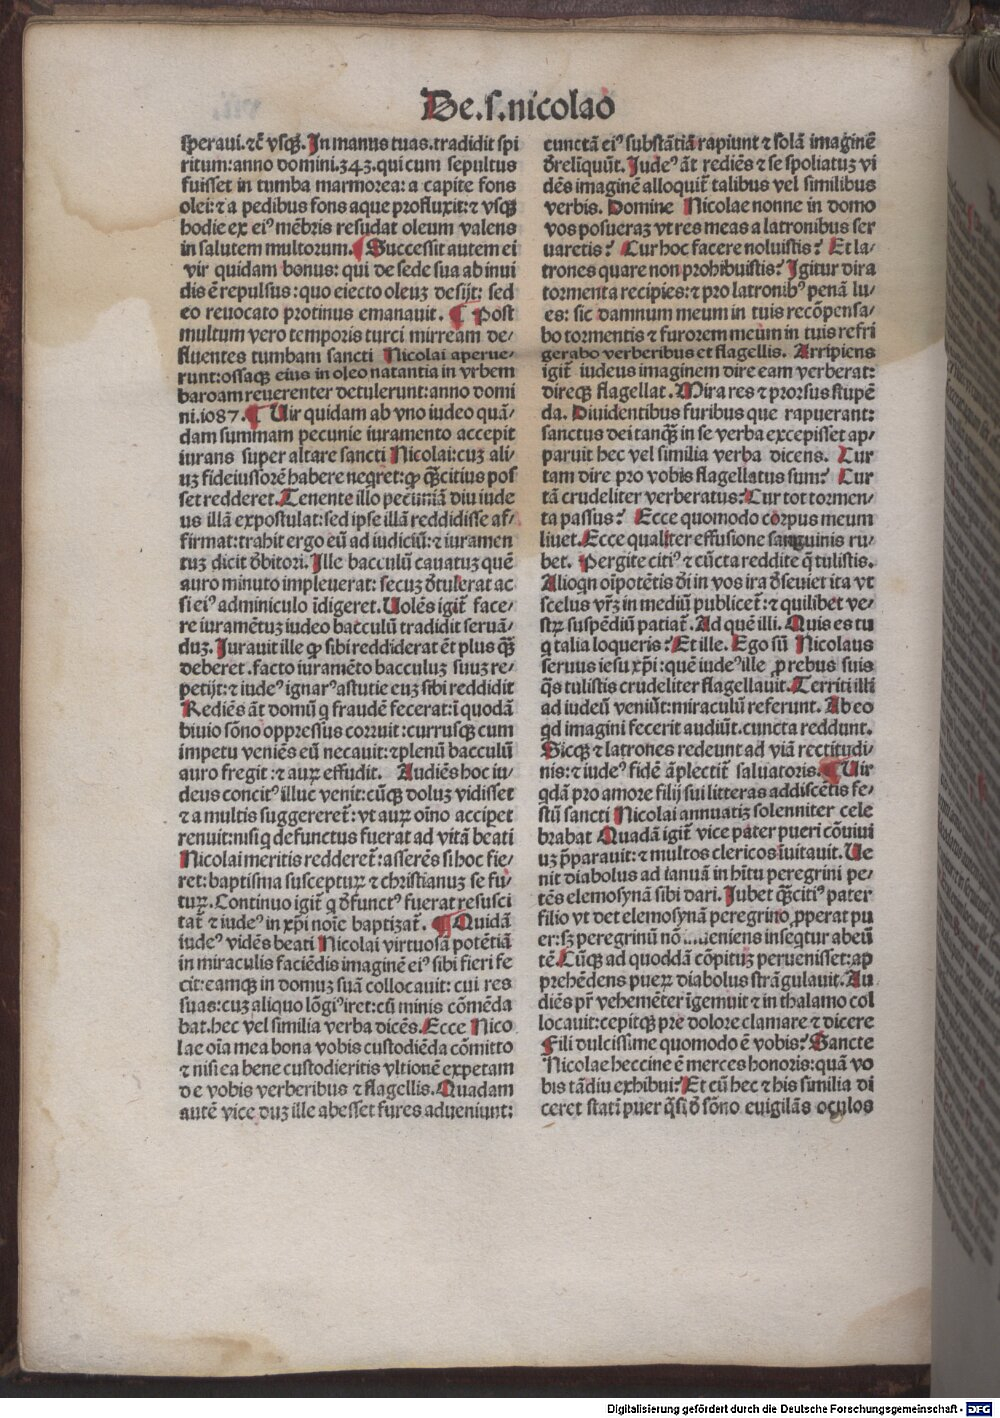 De.s.nicolao
speraui.⁊c̄ vsq̄. In manus tuas.tradidit spi
ritum:anno domini.343.qui cum sepultus
fuisset in tumba marmorea: a capite fons
olei:⁊ a pedibus fons aque profluxit:⁊ vsqꝫ
hodie ex eiꝰ mēbris resudat oleum valens
in salutem multorum. ¶ Successit autem ei
vir quidam bonus: qui de sede sua ab inui
dis ē repulsus: quo eiecto oleuꝫ desijt: sed
eo reuocato protinus emanauit. ¶ Post
multum vero temporis turci mirream de⸗
fluentes tumbam sancti Nicolai aperue⸗
runt:ossaqꝫ eius in oleo natantia in vrbem
baroam reuerenter detulerunt:anno domi
ni.1087. ¶ Uir quidam ab vno iudeo quā⸗
dam summam pecunie iuramento accepit
iurans super altare sancti Nicolai:cuꝫ ali⸗
uꝫ fideiussorē habere neqret:ꝙ q̄ꝫcitius pos
set redderet. Tenente illo pecuniā diu iude
us illā expostulat:sed ipse illā reddidisse af⸗
firmat:trahit ergo eū ad iudiciū:⁊ iuramen
tuꝫ dicit d̄bitori. Ille bacculū cauatuꝫ quē
auro minuto impleuerat: secuꝫ d̄tulerat ac
si eiꝰ adminiculo īdigeret. Uolēs igit᷑ face⸗
re iuramētuꝫ iudeo bacculū tradidit seruā⸗
duꝫ. Iurauit ille ꝙ sibi reddiderat ēt plus q̄ꝫ
deberet.facto iuramēto bacculuꝫ suuꝫ re⸗
petijt:⁊ iudeꝰ ignarꝰ astutie euꝫ sibi reddidit
Rediēs āt domū q fraudē fecerat:ī quodā
biuio sōno oppressus corruit:currusqꝫ cum
impetu veniēs eū necauit:⁊ plenū bacculū
auro fregit:⁊ auꝝ effudit. Audiēs hoc iu⸗
deus concitꝰ illuc venit:cūqꝫ doluꝫ vidisset
⁊ a multis suggereret᷑:vt auꝝ oīno accipet
renuit:nisi q defunctus fuerat ad vitā beati
Nicolai meritis redderet᷑:asserēs si hoc fie⸗
ret:baptisma susceptuꝝ ⁊ christianuꝫ se fu⸗
tuꝝ. Continuo igit᷑ q d̄functꝰ fuerat resusci
tat᷑ ⁊ iudeꝰ in xp̄i noīe baptizat᷑. ¶ Quidā
iudeꝰ vidēs beati Nicolai virtuosā potētiā
in miraculis faciēdis imaginē eiꝰ sibi fieri fe
cit:eamqꝫ in domuꝫ suā collocauit: cui res
suas:cuꝫ aliquo lōgiꝰ iret:cū minis cōmēda
bat.hec vel similia verba dicēs. Ecce Nico
lae oīa mea bona vobis custodiēda cōmitto
⁊ nisi ea bene custodieritis vltionē expetam
de vobis verberibus ⁊ flagellis. Quadam
autē vice duꝫ ille abesset fures adueniunt:
cunctā eiꝰ substātiā rapiunt ⁊ solā imaginē
d̄reliq̄uūt. Iudeꝰ āt rediēs ⁊ se spoliatuꝫ vi
dēs imaginē alloquit᷑ talibus vel similibus
verbis. Domine Nicolae nonne in domo
vos posueraꝫ vt res meas a latronibus ser
uaretis? Cur hoc facere noluistis? Et la⸗
trones quare non prohibuistis? Igitur dira
tormenta recipies:⁊ pro latronibꝰ penā lu⸗
es: sic damnum meum in tuis recōpensa⸗
bo tormentis ⁊ furorem meum in tuis refri
gerabo verberibus et flagellis. Arripiens
igit᷑ iudeus imaginem dire eam verberat:
direqꝫ flagellat. Mira res ⁊ prorsus stupē
da. Diuidentibus furibus que rapuerant:
sanctus dei tanqꝫ in se verba excepisset ap⸗
paruit hec vel similia verba dicens. Cur
tam dire pro vobis flagellatus sum? Cur
tā crudeliter verberatus? Cur tot tormen⸗
ta passus? Ecce quomodo corpus meum
liuet. Ecce qualiter effusione sanguinis ru⸗
bet. Pergite citiꝰ ⁊ cūcta reddite q̄ tulistis.
Alioqn oīpotētis d̄i in vos ira d̄seuiet ita vt
scelus vr̄ꝫ in mediū publicet᷑:⁊ quilibet ve⸗
stꝝ suspēdiū patiat᷑. Ad quē illi. Quis es tu
q talia loqueris? Et ille. Ego sū Nicolaus
seruus iesu xp̄i: quē iudeꝰ ille ꝓ rebus suis
q̄s tulistis crudeliter flagellauit. Territi illi
ad iudeū veniūt:miraculū referunt. Ab eo
qd imagini fecerit audiūt.cuncta reddunt.
Sicqꝫ ⁊ latrones redeunt ad viā rectitudi⸗
nis:⁊ iudeꝰ fidē āplectit᷑ saluatoris. ¶ Uir
qdā pro amore filij sui litteras addiscētis fe⸗
stū sancti Nicolai annuatiꝫ solenniter cele
brabat Quadā igit᷑ vice pater pueri cōuiui
uꝫ p̄parauit:⁊ multos clericos īuitauit. Ue
nit diabolus ad ianuā in hītu peregrini pe⸗
tēs elemosynā sibi dari. Iubet q̄ꝫcitiꝰ pater
filio vt det elemosynā peregrino ꝓperat pu
er:sꝫ peregrinū nō ...ieniens inseqtur abeū
tē. Cūqꝫ ad quoddā cōpituꝫ peruenisset:ap
prehēdens pueꝝ diabolus strāgulauit. Au
diēs pr̄ vehemēter īgemuit ⁊ in thalamo col
locauit:cepitqꝫ pre dolore clamare ⁊ dicere
Fili dulcissime quomodo ē vobis? Sancte
Nicolae heccine ē merces honoris:quā vo
bis tādiu exhibui? Et cū hec ⁊ his similia di
ceret statī puer q̄si d̄ sōno euigilās oculos
Digitalisierung gefördert durch die Deutsche Forschungsgemeinschaft - DFG